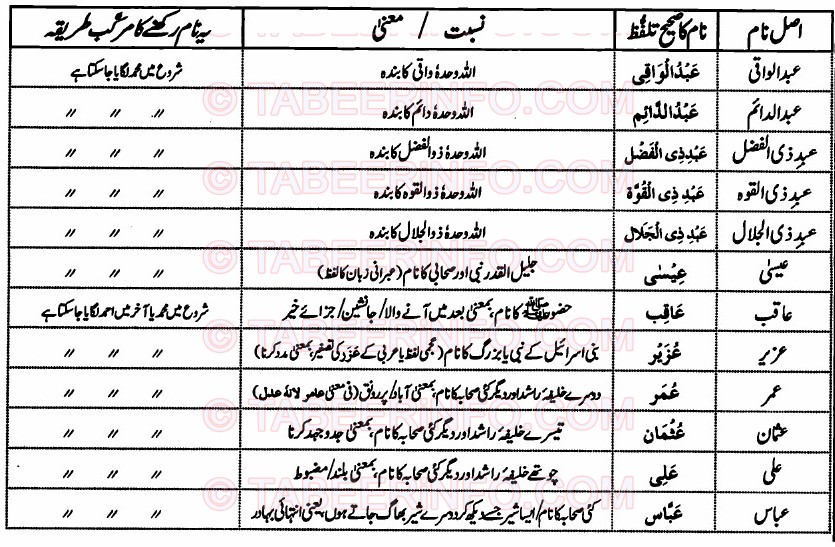 اصل نام | نام کا صحیح تلفّظ | نسبت / معنیٰ | یہ نام رکھنے کا مرکب طریقہ
عبدالواقی | عَبْدُ الْوَاقِی | اللہ وحدہٗ واقی کا بندہ | شروع میں محمد لگایا جا سکتا ہے
عبدالدائم | عَبْدُ الدَّائِم | اللہ وحدہٗ دائم کا بندہ | // // //
عبدِ ذی الفضل | عَبْدِ ذِی الْفَضْل | اللہ وحدہٗ ذوالفضل کا بندہ | // // //
عبدِ ذی القوہ | عَبْدِ ذِی الْقُوَّة | اللہ وحدہٗ ذوالقوہ کا بندہ | // // //
عبدِ ذی الجلال | عَبْدِ ذِی الْجَلَال | اللہ وحدہٗ ذوالجلال کا بندہ | // // //
عیسیٰ | عِیْسٰی | جلیل القدر نبی اور صحابی کا نام (عبرانی زبان کا لفظ)
عاقب | عَاقِب | حضور ﷺ کا نام، بمعنیٰ بعد میں آنے والا / جانشین / جزائے خیر | شروع میں محمد یا آخر میں احمد لگایا جا سکتا ہے
عزیر | عُزَیْر | بنی اسرائیل کے نبی یا بزرگ کا نام (عجمی لفظ یا عربی کے عَزَر کی تصغیر، بمعنیٰ مدد کرنا) | // // //
عمر | عُمَر | دوسرے خلیفۂ راشد اور دیگر کئی صحابہ کا نام، بمعنیٰ آباد / پررونق (فی معنی عامر لانہٗ عدل) | // // //
عثمان | عُثْمَان | تیسرے خلیفۂ راشد اور دیگر کئی صحابہ کا نام، بمعنیٰ جدوجہد کرنا | // // //
علی | عَلِی | چوتھے خلیفۂ راشد اور دیگر کئی صحابہ کا نام، بمعنیٰ بلند / مضبوط | // // //
عباس | عَبَّاس | کئی صحابہ کا نام / ایسا شیر جسے دیکھ کر دوسرے شیر بھاگ جاتے ہوں، یعنی انتہائی بہادر | // // //
© TABEERINFO.COM
© TABEERINFO.COM
© TABEERINFO.COM
© TABEERINFO.COM
© TABEERINFO.COM
© TABEERINFO.COM